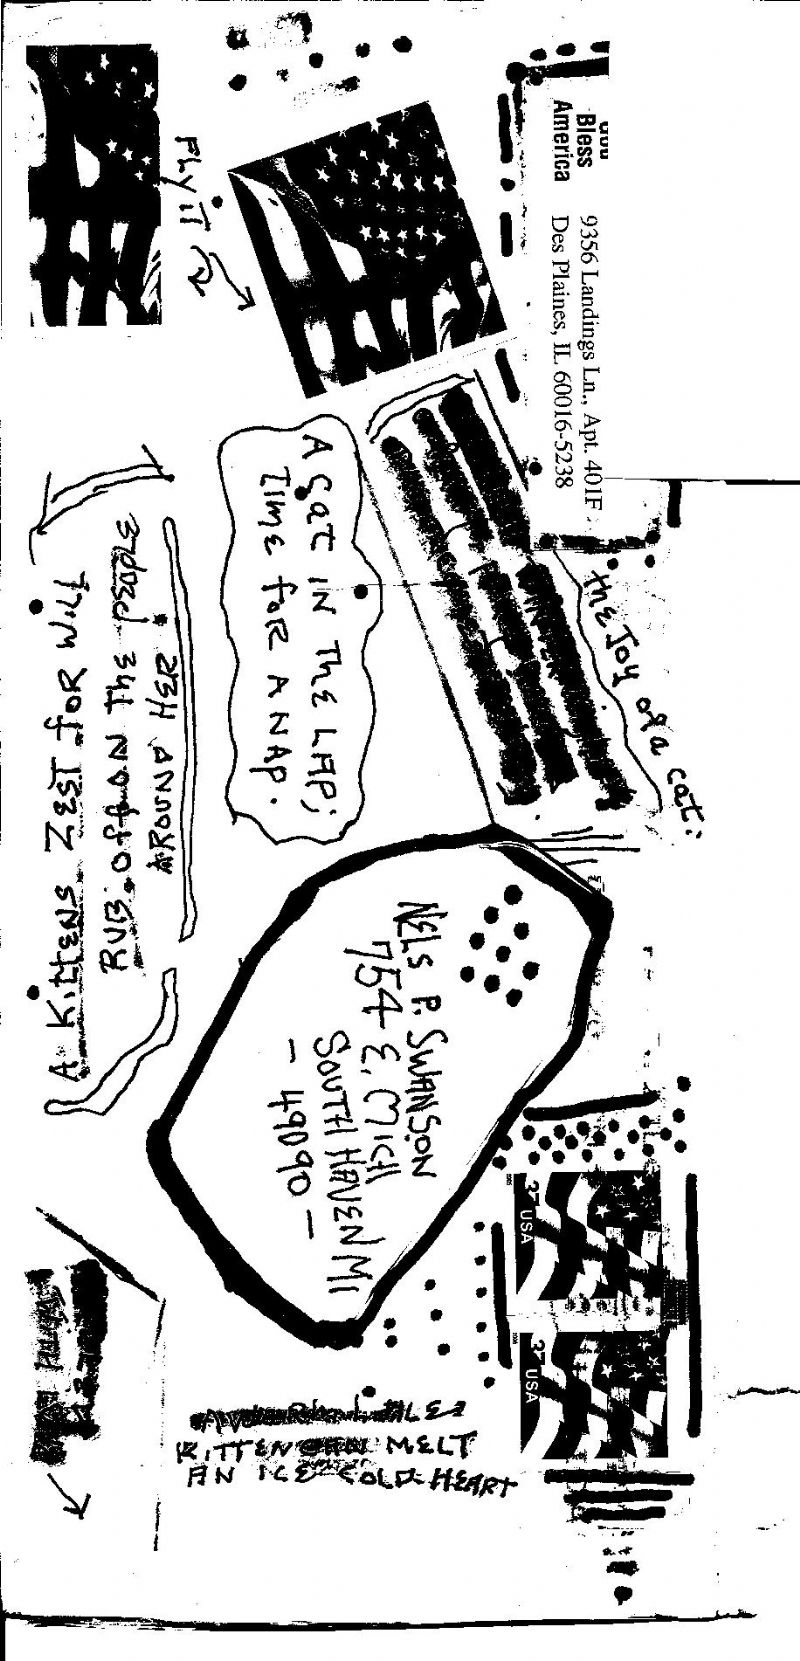 Bless
America
9356 Landings Ln., Apt. 401F
Des Plaines, IL 60016-5238
FLY iT
the Joy of a cat:
A Cat IN THE LAP;
TIME foR A NAP.
A KittENS ZEST foR WiLL
RUB off ON THE PEOPLE
AROUND HER
NELS P. SWANSON
754 E. MICH
SOUTH HAVEN MI
- 49090 -
37 USA
37 USA
KITTEN CAN MELT
AN ICE-COLD-HEART